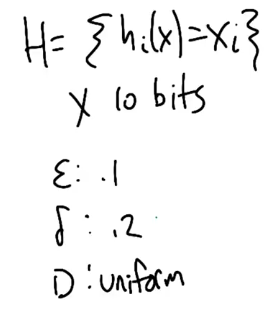 H= {hᵢ(x)=xᵢ}
X 10 bits
ε: .1
δ: .2
D: uniform